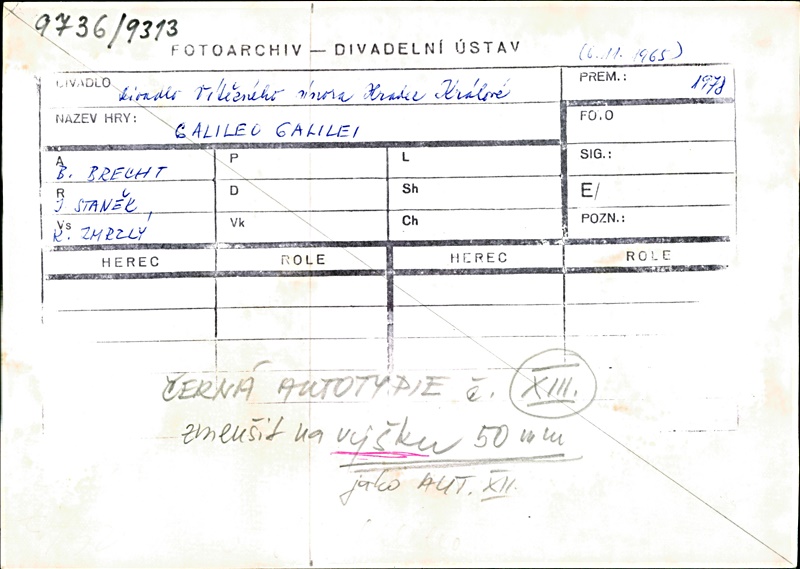 9736/9313
FOTOARCHIV — DIVADELNÍ ÚSTAV
(6.11.1965)
DIVADLO Divadlo Vítězného února Hradec Králové
PREM.: 1978
NÁZEV HRY: GALILEO GALILEI
FO.O
A B. BRECHT
P
L
SIG.:
R J STANĚK
D
Sh
E/
Vs K. ZMRZLÝ
Vk
Ch
POZN.:
HEREC ROLE HEREC ROLE
ČERNÁ AUTOTYPIE č. XIII.
zmenšit na výšku 50 mm
jako AUT. XII.